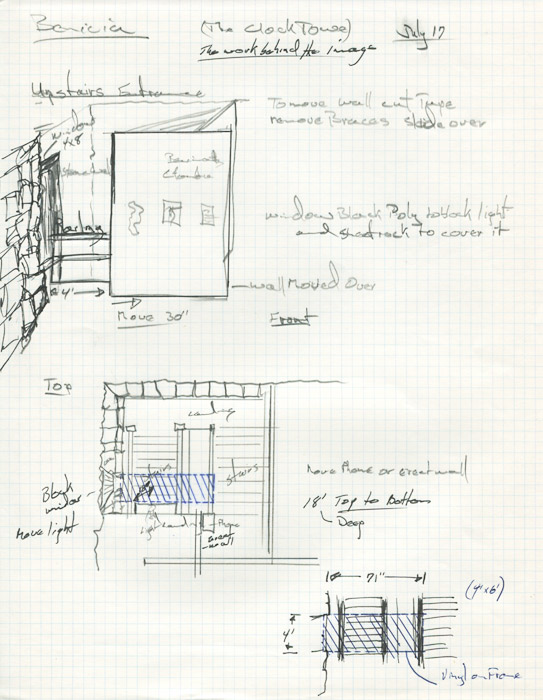 Benicia (The Clock Tower) July 17
The work behind the image
Upstairs Entrance
window
4x8
To move wall cut Tape
remove Braces slide over
Railing
window Black Poly to block light
and sheetrock to cover it
4'
Wall Moved Over
Move 30"
Front
Top
Landing
stairs
stairs
Block
window
Move light
Light
Landing
Phone
Move Phone or erect wall
18' Top to Bottom
Deep
71"
(4'x6')
4'
Vinyl on Frame